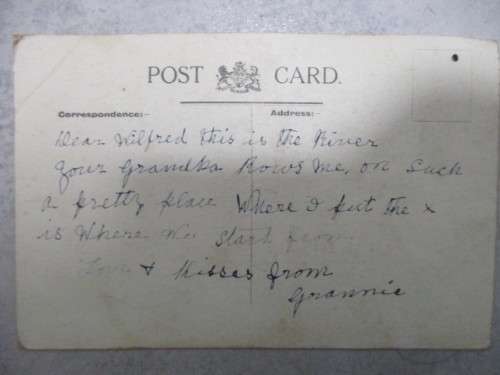 POST CARD.
Correspondence:-
Address:-
Dear Wilfred this is the River
your Grandpa Rows me, on Such
a pretty place Where I put the x
is Where We Start from
Love & Kisses from
Grannie